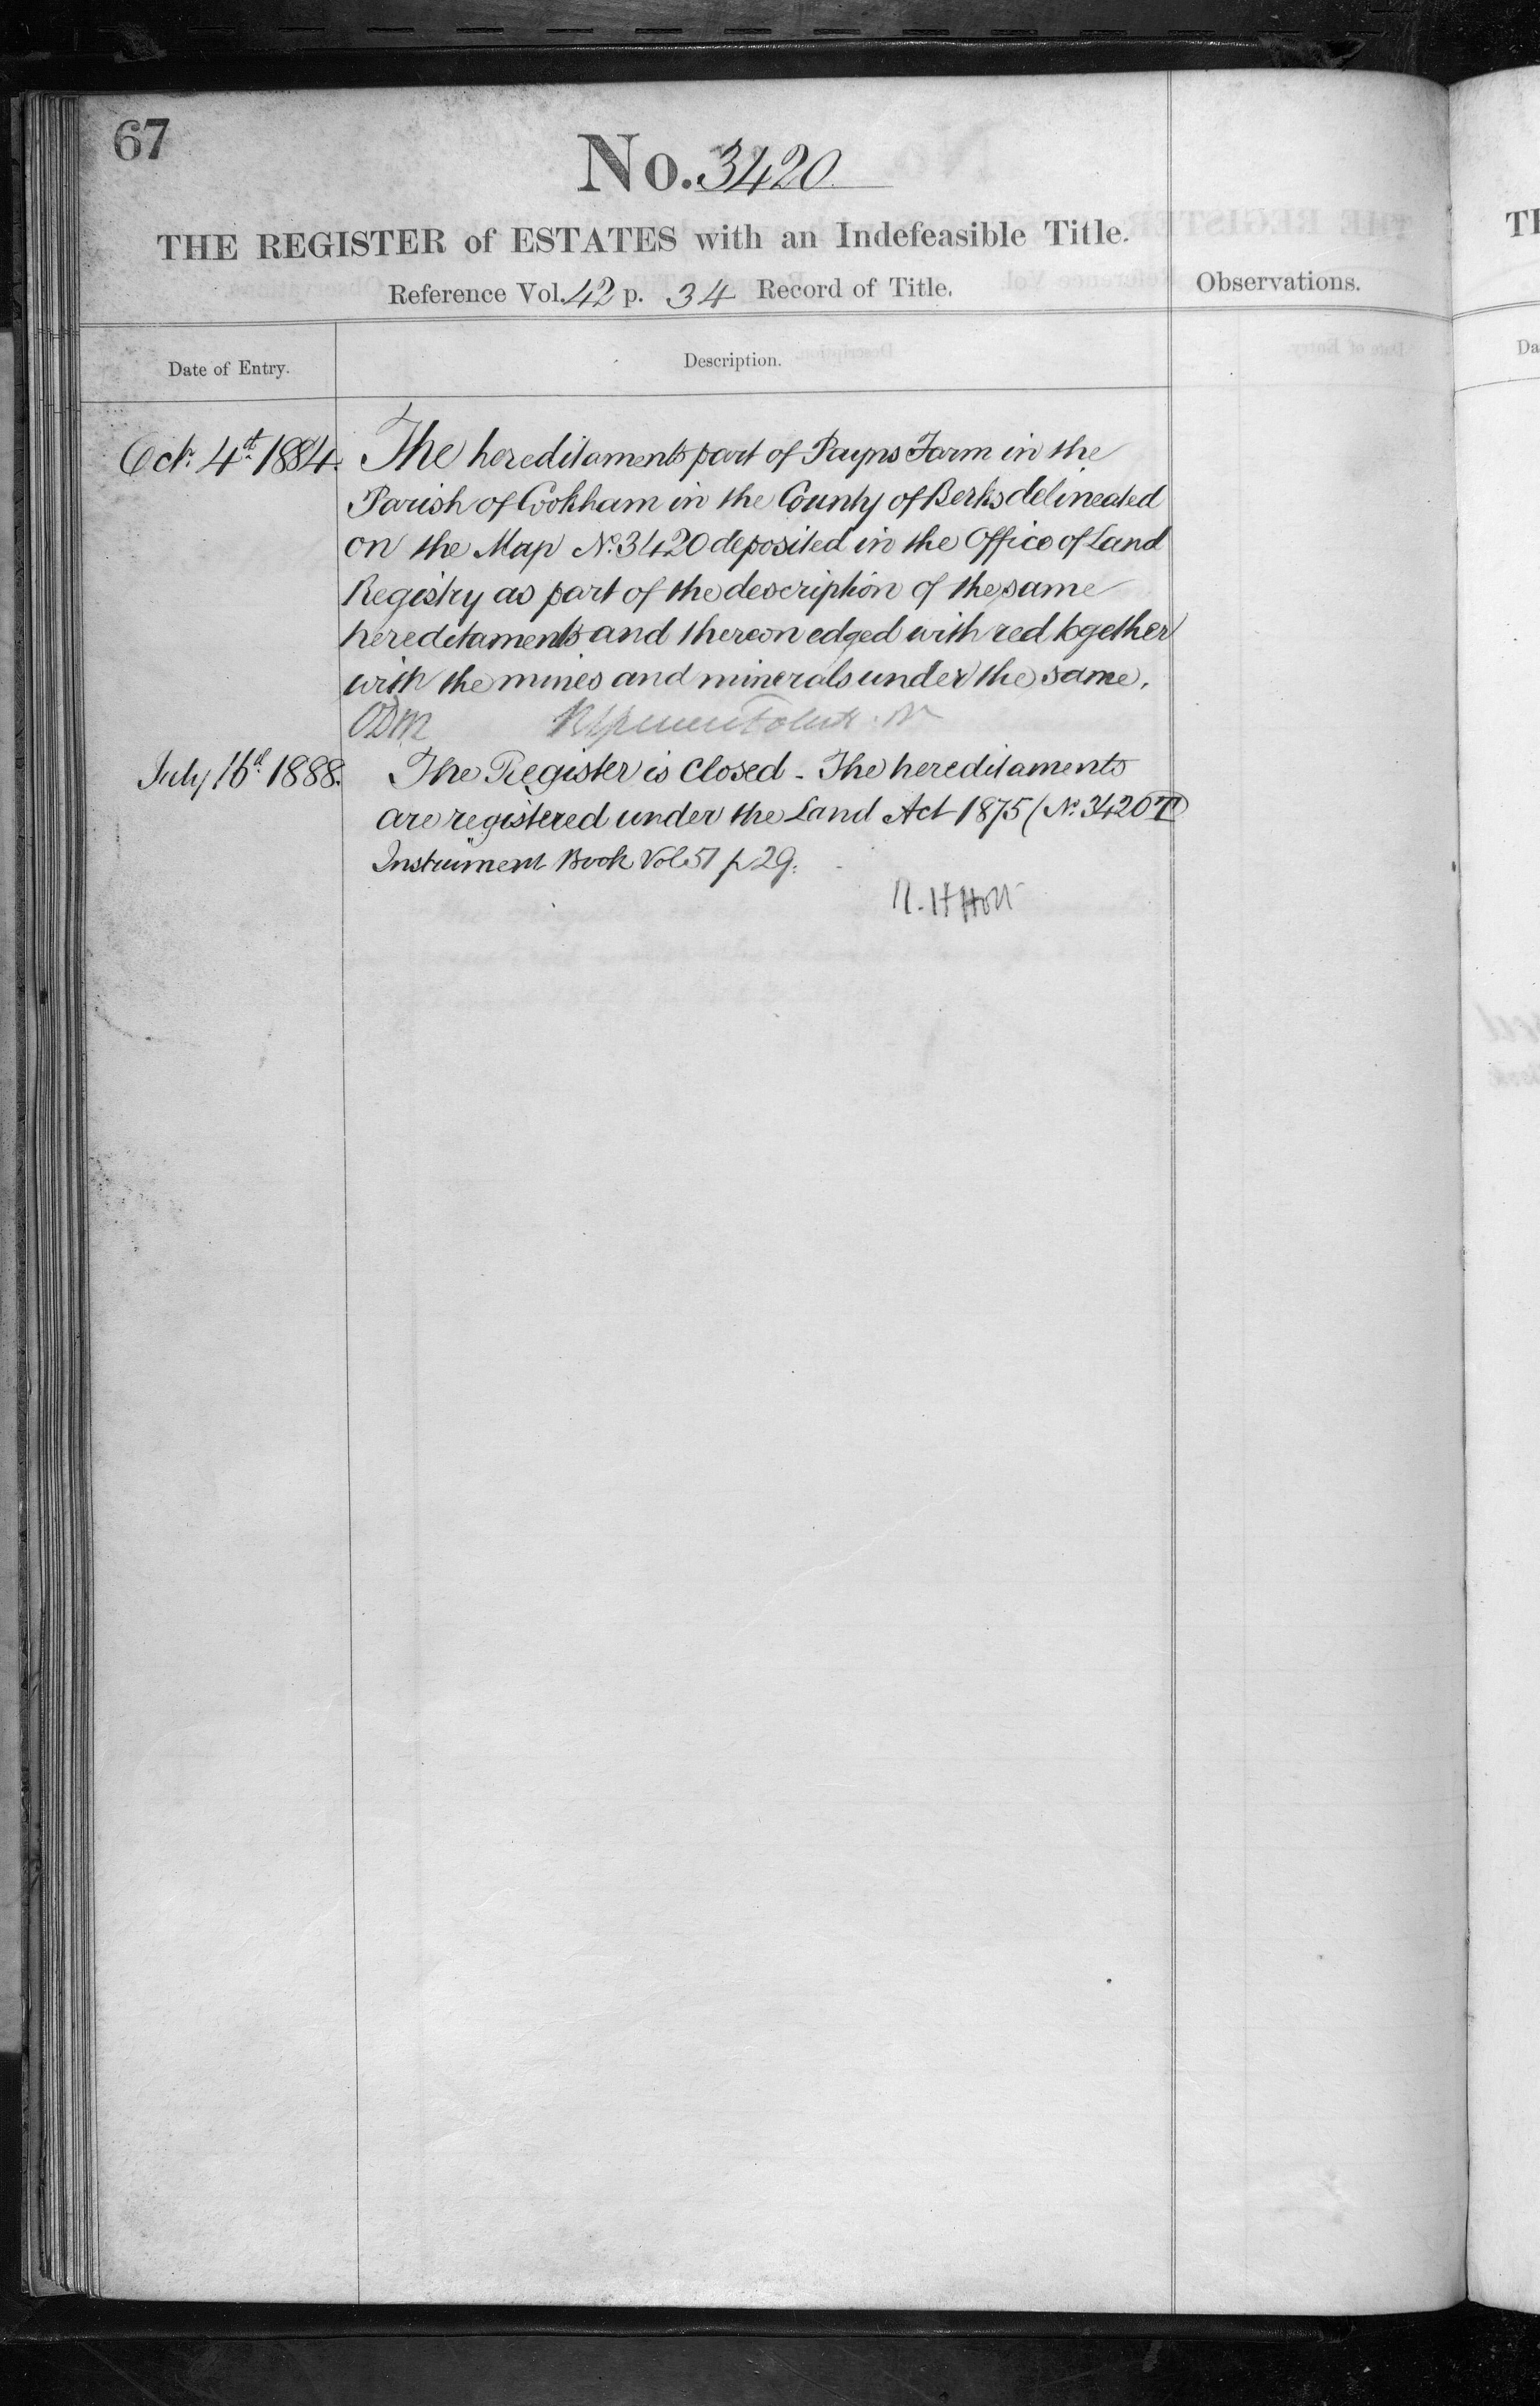 67
No. 3420
THE REGISTER of ESTATES with an Indefeasible Title.
Reference Vol. 42 p. 34 Record of Title.
Observations.
Date of Entry.
Description.
Octr. 4th 1884.
The hereditaments part of Payns Farm in the
Parish of Cookham in the County of Berks delineated
on the Map No. 3420 deposited in the Office of Land
Registry as part of the description of the same
hereditaments and thereon edged with red together
with the mines and minerals under the same.
July 16th 1888.
The Register is Closed - The hereditaments
are registered under the Land Act 1875 (No. 3420 T)
Instrument Book Vol 51 p 29.
R. H Holt
TH
Da